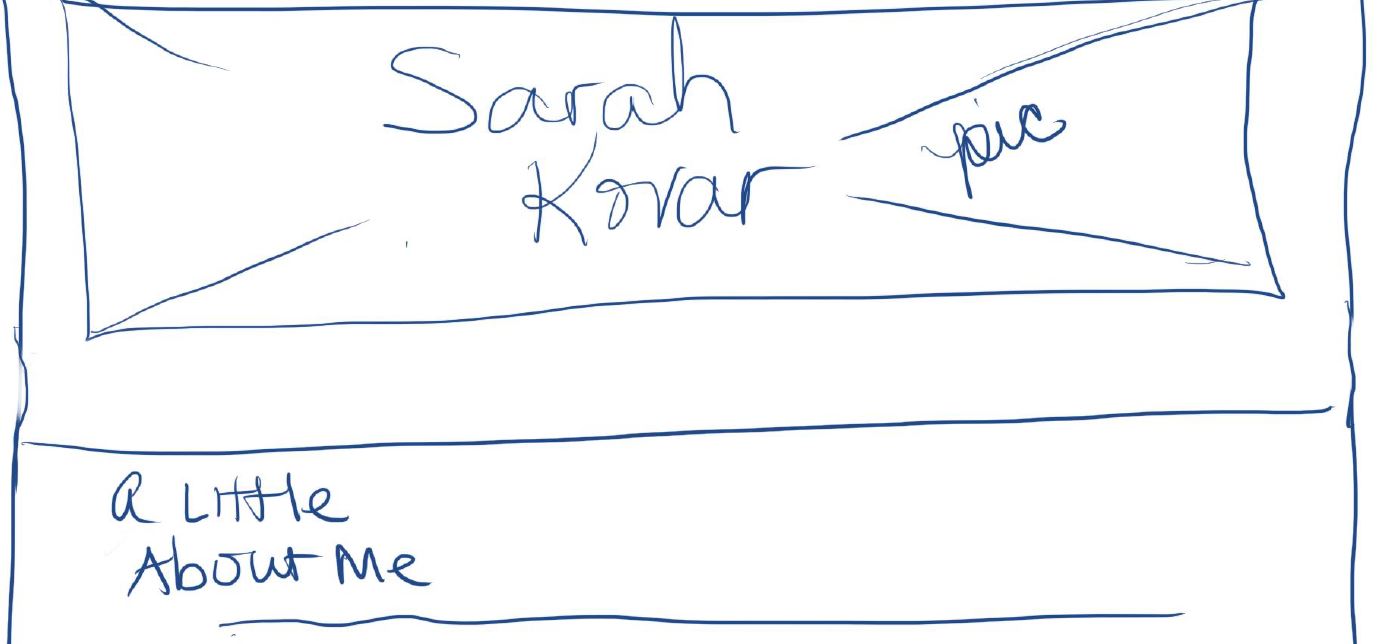 Sarah
Kovar
pic
A Little
About Me